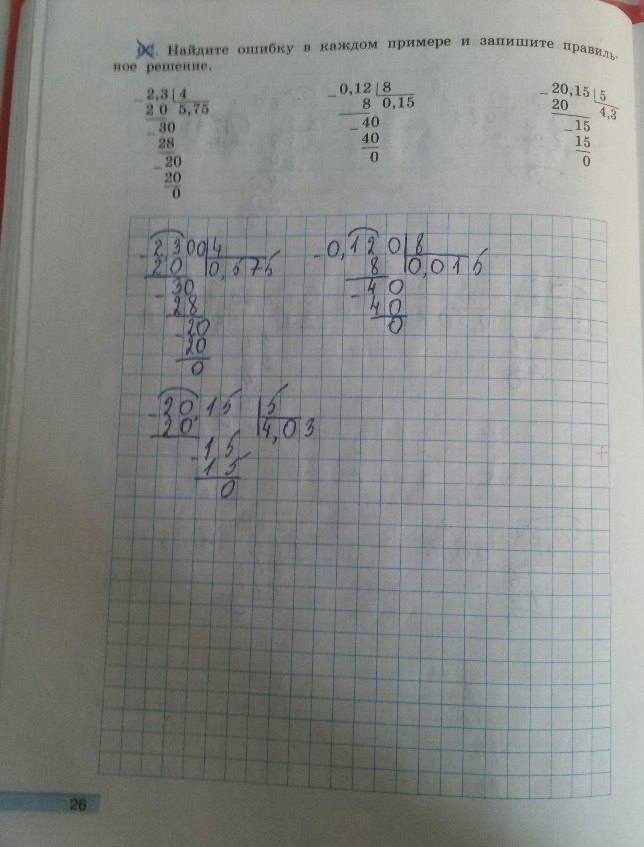 Найдите ошибку в каждом примере и запишите правиль-
ное решение.
2,3 4
2 0 5,75
30
28
20
20
0
0,12 8
8 0,15
40
40
0
20,15 5
20 4,3
15
15
0
2300 4
20 0,575
30
28
20
20
0
0,120 8
8 0,015
40
40
0
20,15 5
20 4,03
15
15
0
26